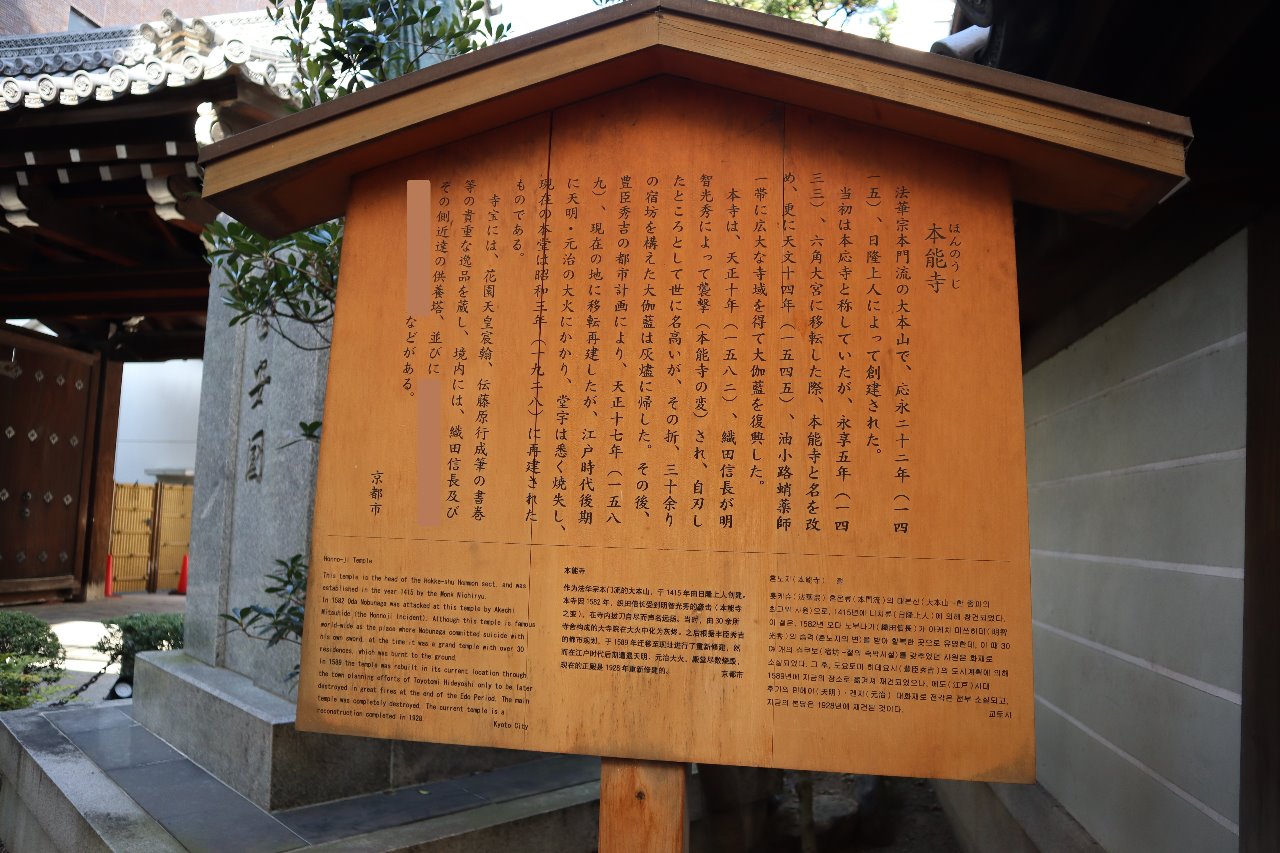 ほんのうじ
本能寺
法華宗本門流の大本山で、応永二十二年（一四
一五）、日隆上人によって創建された。
当初は本応寺と称していたが、永享五年（一四
三三）、六角大宮に移転した際、本能寺と名を改
め、更に天文十四年（一五四五）、油小路蛸薬師
一帯に広大な寺域を得て大伽藍を復興した。
本寺は、天正十年（一五八二）、織田信長が明
智光秀によって襲撃（本能寺の変）され、自刃し
たところとして世に名高いが、その折、三十余り
の宿坊を構えた大伽藍は灰燼に帰した。その後、
豊臣秀吉の都市計画により、天正十七年（一五八
九）、現在の地に移転再建したが、江戸時代後期
に天明・元治の大火にかかり、堂宇は悉く焼失し、
現在の本堂は昭和三年（一九二八）に再建された
ものである。
寺宝には、花園天皇宸翰、伝藤原行成筆の書巻
等の貴重な逸品を蔵し、境内には、織田信長及び
その側近達の供養塔、並びに
などがある。
京都市
Honno-ji Temple
This temple is the head of the Hokke-shu Honmon sect, and was
established in the year 1415 by the Monk Nichiryu.
In 1582 Oda Nobunaga was attacked at this temple by Akechi
Mitsuhide (the Honnoji Incident). Although this temple is famous
world-wide as the place where Nobunaga committed suicide with
his own sword, at the time it was a grand temple with over 30
residences, which was burnt to the ground.
In 1589 the temple was rebuilt in its current location through
the town planning efforts of Toyotomi Hideyoshi only to be later
destroyed in great fires at the end of the Edo Period. The main
temple was completely destroyed. The current temple is a
reconstruction completed in 1928.
Kyoto City
本能寺
作为法华宗本门流的大本山，于1415年由日隆上人创建。
本寺因1582年，织田信长受到明智光秀的袭击（本能寺
之变），在寺内拔刀自尽而声名远扬。当时，由30余所
寺舍构成的大寺院在大火中化为灰烬。之后根据丰臣秀吉
的都市规划，于1589年迁移至现址进行了重新修建，然
而在江户时代后期遭遇天明、元治大火，殿堂尽数烧毁，
现在的正殿是1928年重新修建的。
京都市
혼노지(本能寺) 절
홋케슈(法華宗) 혼몬류(本門流)의 대본산(大本山-한 종파의
최고위 사원)으로, 1415년에 니치류(日隆上人)에 의해 창건되었다.
이 절은, 1582년 오다 노부나가(織田信長)가 아케치 미쓰히데(明智
光秀)의 습격(혼노지의 변)을 받아 할복한 곳으로 유명한데, 이 때 30
여 개의 슈쿠보(宿坊-절의 숙박시설)를 갖추었던 사원은 화재로
소실되었다. 그 후, 도요토미 히데요시(豊臣秀吉)의 도시계획에 의해
1589년에 지금의 장소로 옮겨져 재건되었으나, 에도(江戸)시대
후기의 텐메이(天明)·겐지(元治) 대화재로 전각은 전부 소실되고,
지금의 본당은 1928년에 재건된 것이다.
교토시